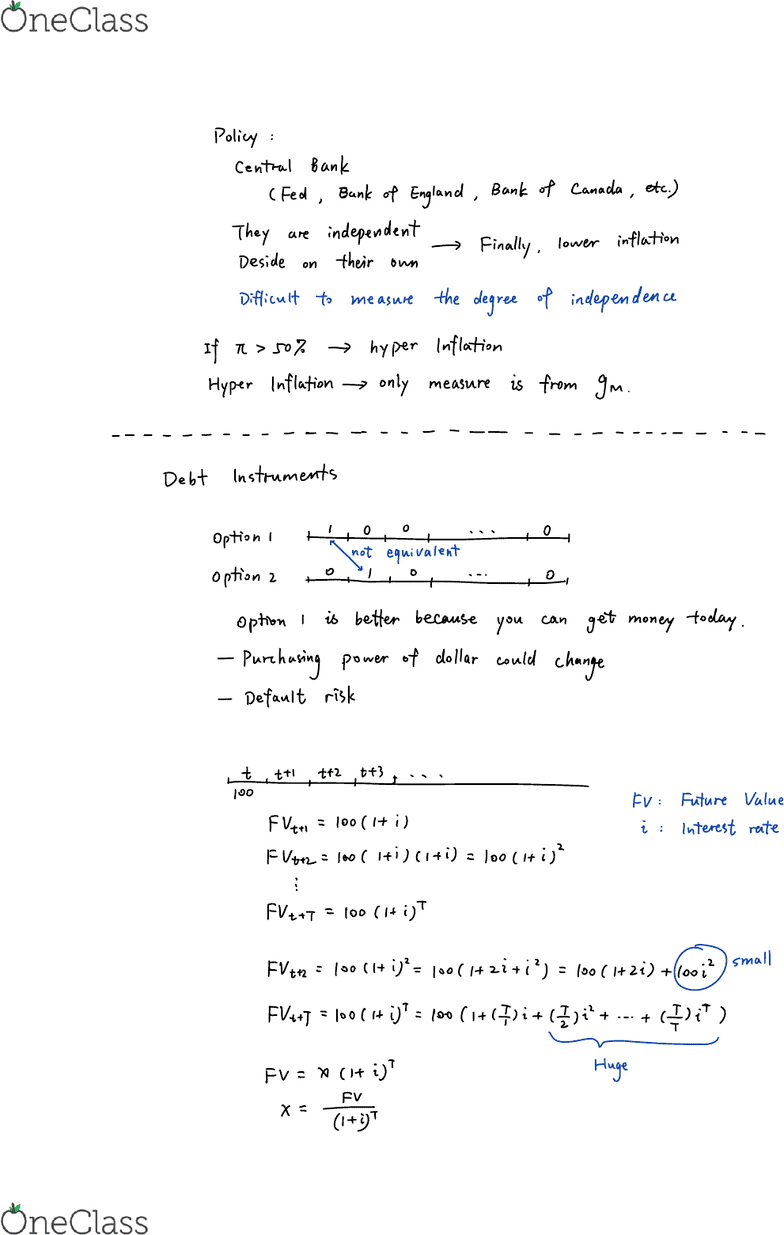 OneClass
Policy :
Central Bank
(Fed , Bank of England , Bank of Canada , etc.)
They are independent
Deside on their own → Finally, lower inflation
Difficult to measure the degree of independence
If π > 50% → hyper Inflation
Hyper Inflation → only measure is from gM.
Debt Instruments
Option 1 1 0 0 ... 0
not equivalent
Option 2 0 1 0 ... 0
Option 1 is better because you can get money today.
— Purchasing power of dollar could change
— Default risk
t t+1 t+2 t+3 , ...
100
FV: Future Value
i : Interest rate
FVt+1 = 100(1+i)
FVt+2 = 100(1+i)(1+i) = 100(1+i)²
⋮
FVt+T = 100(1+i)ᵀ
FVt+2 = 100(1+i)² = 100(1+2i+i²) = 100(1+2i) + 100i² small
FVt+T = 100(1+i)ᵀ = 100(1+(T/1)i+(T/2)i²+ ... + (T/T)iᵀ)
Huge
FV = x(1+i)ᵀ
x = FV/(1+i)ᵀ
OneClass